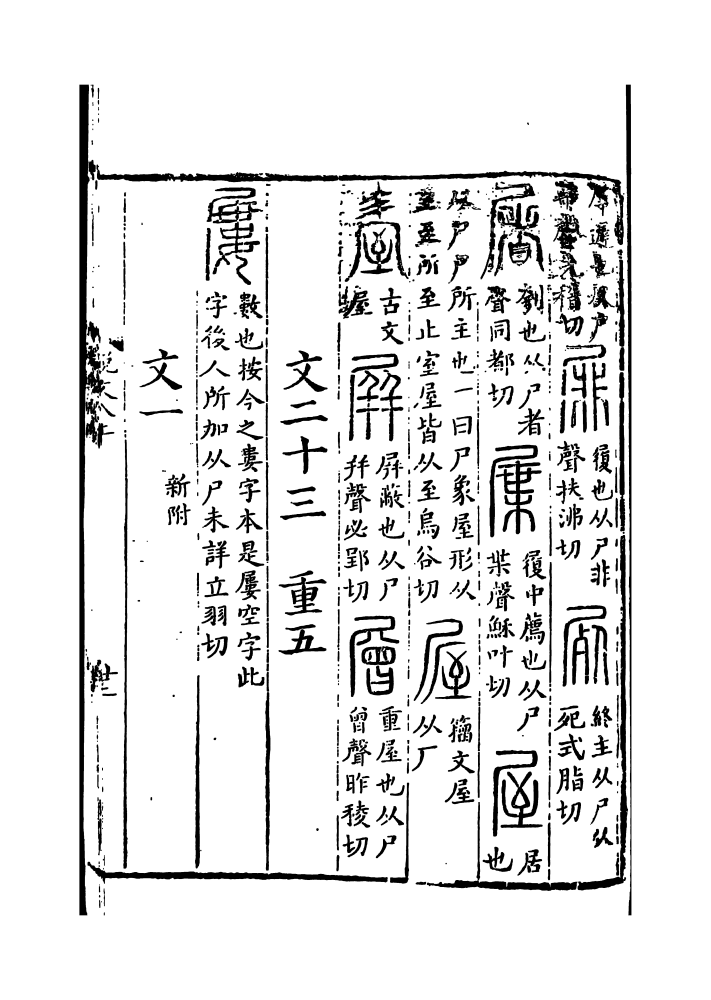 屖遲也从尸
辛聲先稽切
屝
履也从尸非
聲扶沸切
屍
終主从尸从
死式脂切
屠
刳也从尸者
聲同都切
屟
履中薦也从尸
枼聲穌叶切
屋
居
也
从尸尸所主也一曰尸象屋形从
至至所至止室屋皆从至烏谷切
籒文屋
从厂
古文
屋
屏
屏蔽也从尸
幷聲必郢切
層
重屋也从尸
曾聲昨稜切
文二十三 重五
屢
數也按今之婁字本是屢空字此
字後人所加从尸未詳立羽切
文一
新附